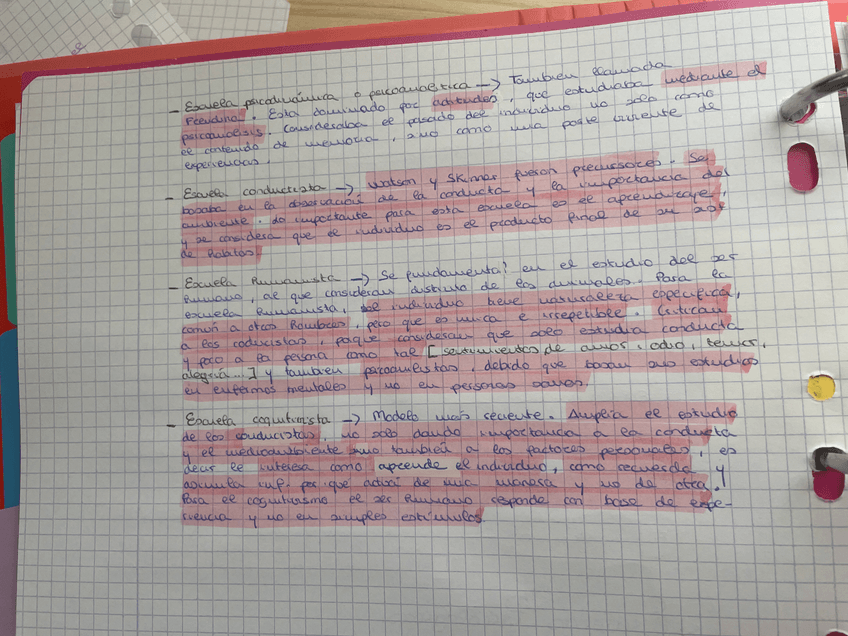 - Escuela psicodinámica o psicoanalítica -> También llamada
Freudina. Está dominado por actitudes, que estudiaba mediante el
psicoanálisis. Consideraba el pasado del individuo no solo como
el contenido de memoria, sino como una parte viviente de
experiencias.
- Escuela conductista -> Watson y Skinner fueron precursores. Se
basaba en la observación de la conducta y la importancia del
ambiente. Lo importante para esta escuela es el aprendizaje,
y se considera que el individuo es el producto final de su
de hábitos.
- Escuela humanista -> Se fundamenta en el estudio del ser
humano, al que consideran distinto de los animales. Para la
escuela humanista, el individuo tiene naturaleza específica,
común a otros hombres, pero que es única e irrepetible. Critican
a los coductistas, porque consideran que solo estudia conducta
y poco a la persona como tal [sentimientos de amor, odio, temor,
alegría...] y tambien psicoanalistas, debido que basan sus estudios
en enfermos mentales y no en personas sanas.
- Escuela cognitivista -> Modelo más reciente. Amplia el estudio
de los conductistas, no solo dando importancia a la conducta
y el medioambiente sino también a los factores personales, es
decir le interesa como aprende el individuo, como recuerda y
asimila inf. por que actúa de una manera y no de otra.
Para el cognitivismo el ser humano responde con base de expe-
riencia y no en simples estímulos.